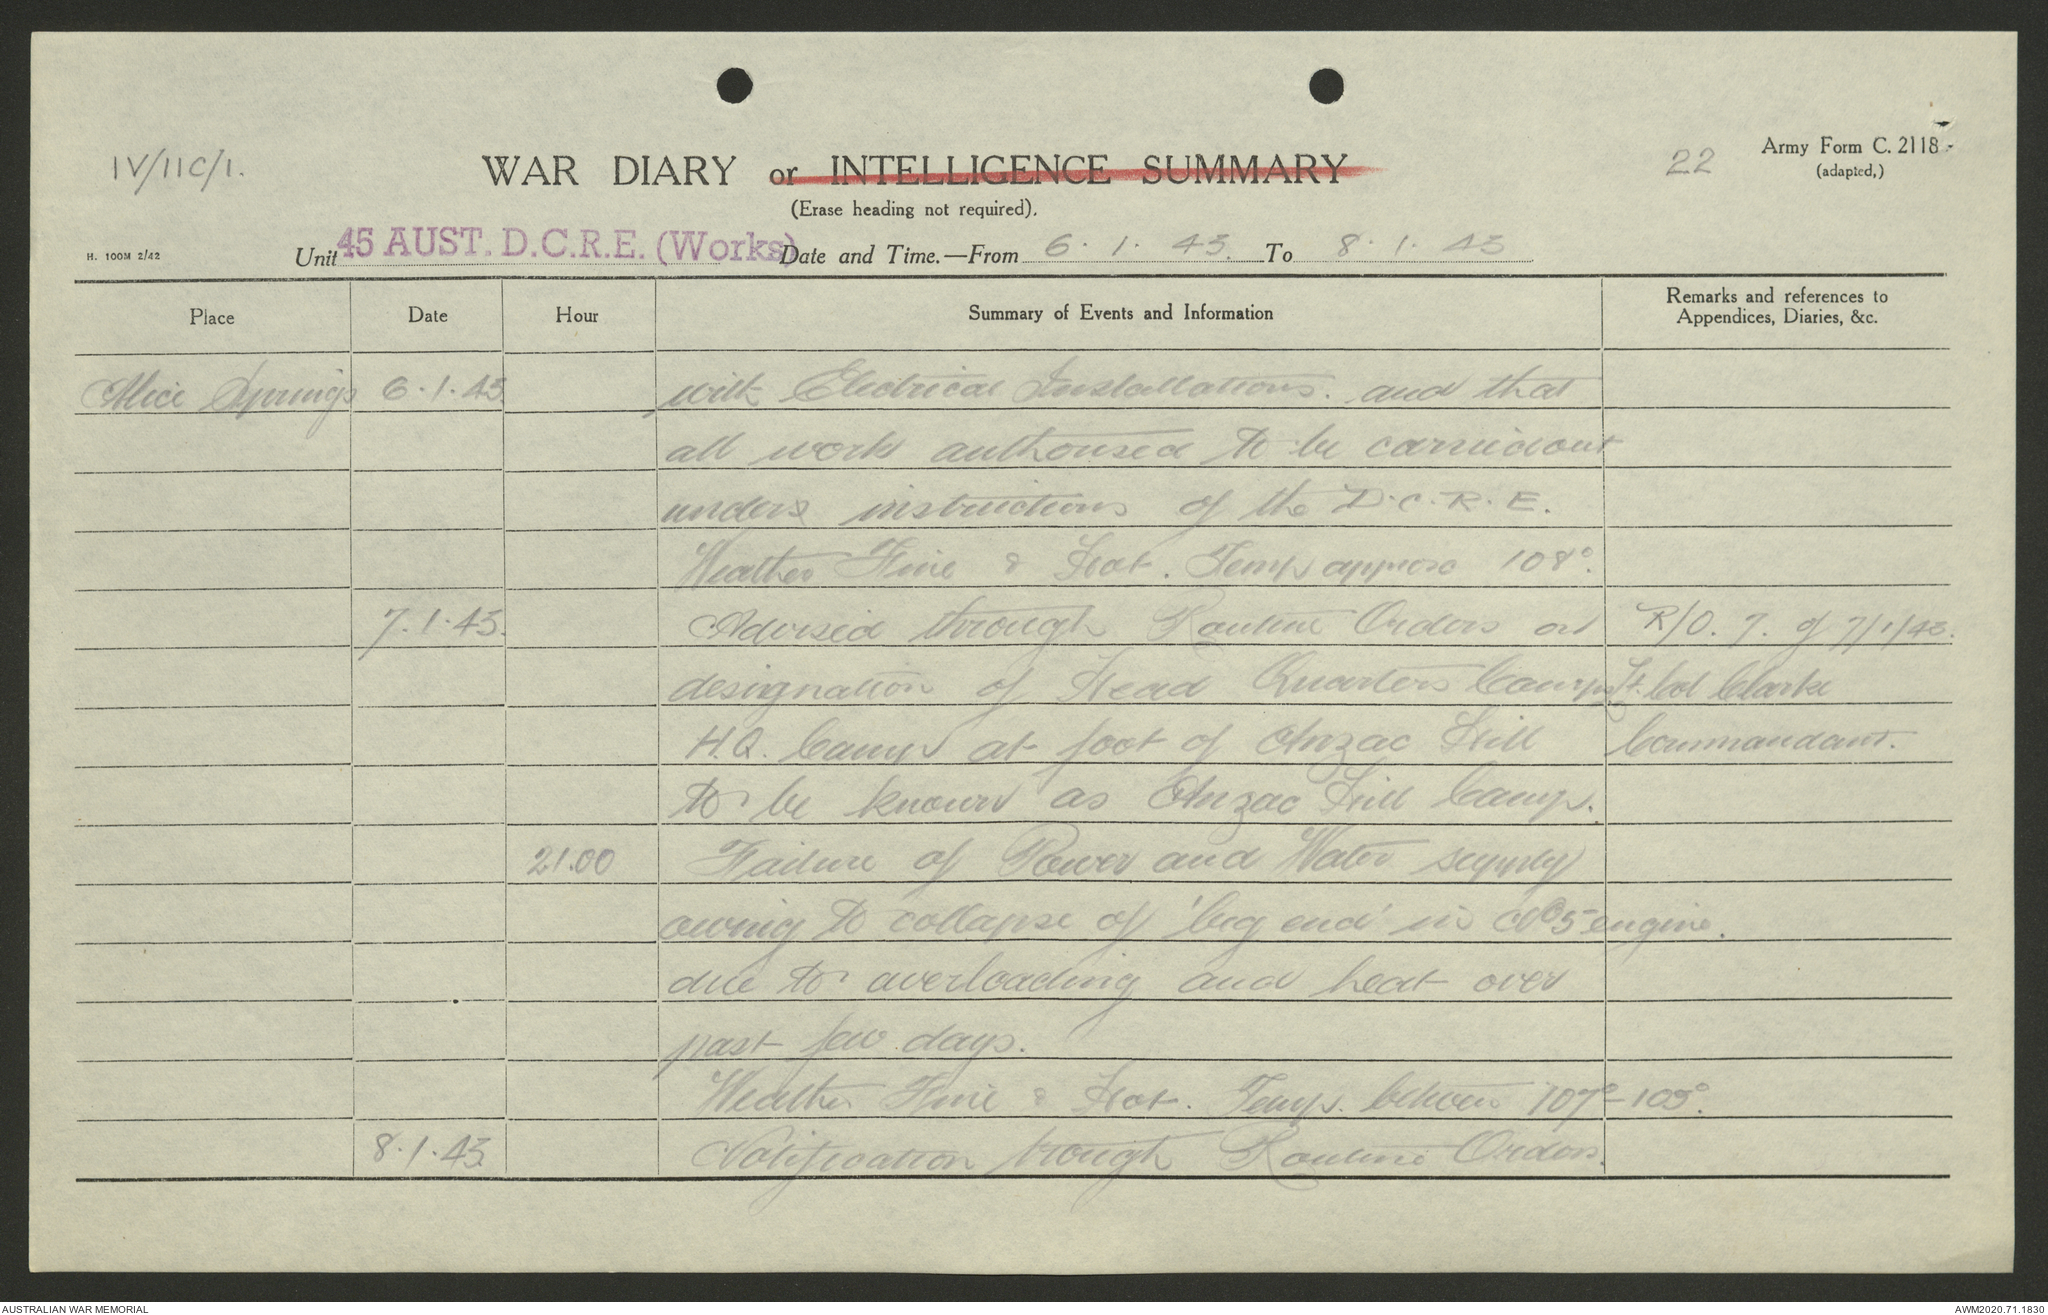 IV/11C/1.
WAR DIARY or INTELLIGENCE SUMMARY
22
Army Form C. 2118.
(adapted,)
(Erase heading not required).
H. 100M 2/42
Unit 45 AUST. D.C.R.E. (Works) Date and Time.—From 6.1.43. To 8.1.43
Place Date Hour Summary of Events and Information Remarks and references to
Appendices, Diaries, &c.
Alice Springs 6.1.43 with Electrical Installations. and that
all work authorised to be carried out
under instructions of the D.C.R.E.
Weather Fine & Hot. Temp approx 108°.
7.1.43. Advised through Routine Orders on R/O. 7. of 7/1/43.
designation of Head Quarters Camps Lt. Col Clarke
H.Q. Camp at foot of Anzac Hill Commandant.
to be known as Anzac Hill Camp.
21.00 Failure of Power and Water supply
owing to collapse of 'big end' in No5 engine.
due to overloading and heat over
past few days.
Weather Fine & Hot. Temp. between 107°-109°.
8.1.43 Notification trough Routine Orders.
AUSTRALIAN WAR MEMORIAL
AWM2020.71.1830